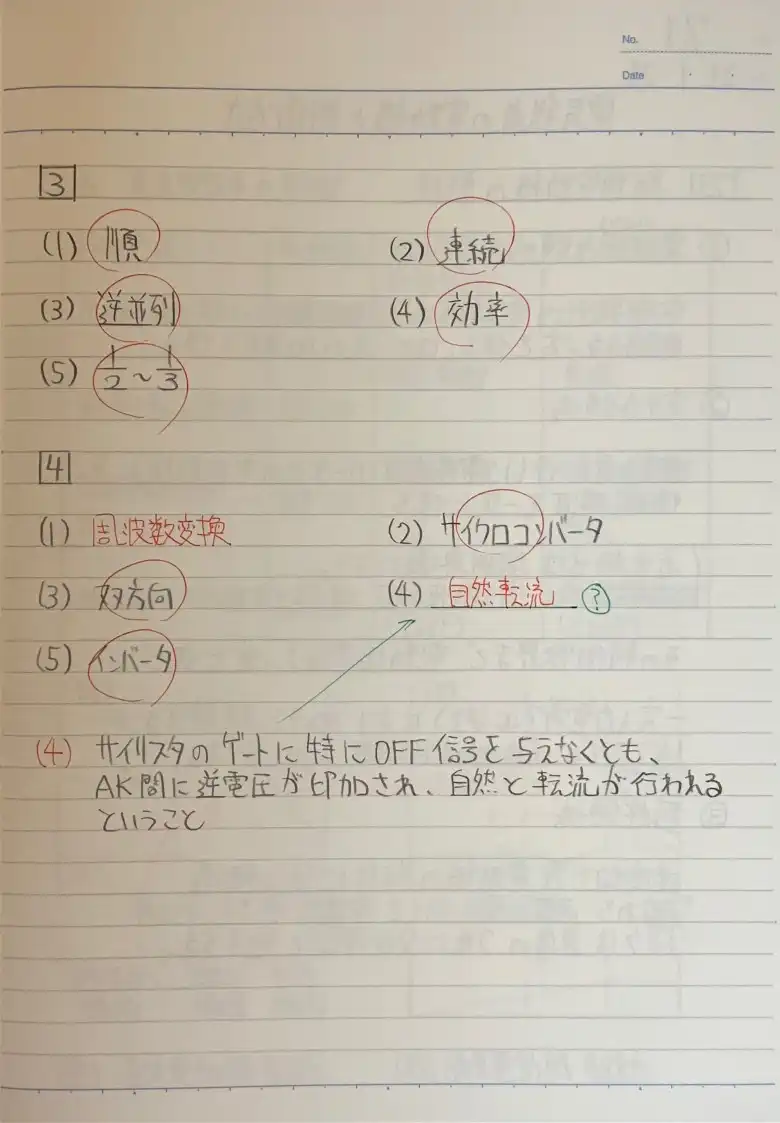 No.
Date
3
(1) 順 (2) 連続
(3) 逆並列 (4) 効率
(5) 1/2 ～ 1/3
4
(1) 周波数変換 (2) サイクロコンバータ
(3) 双方向 (4) 自然転流 ?
(5) インバータ
(4) サイリスタのゲートに特にOFF信号を与えなくとも、
AK間に逆電圧が印加され、自然と転流が行われる
ということ